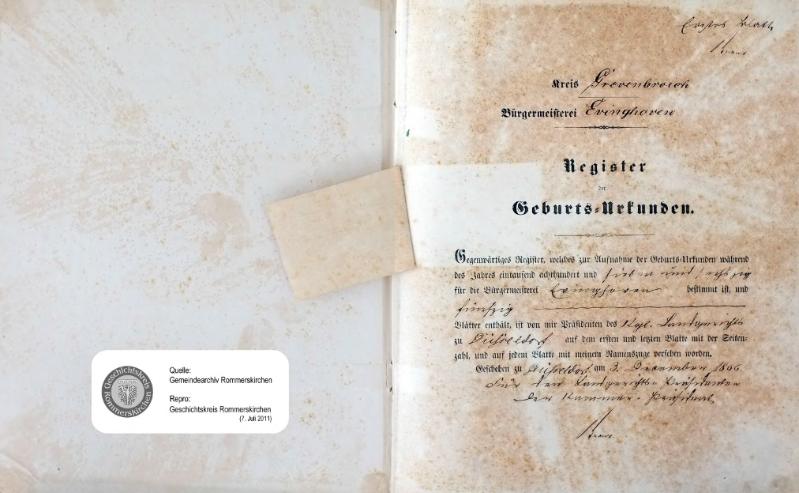 Erstes Blatt
Kreis Grevenbroich
Bürgermeisterei Evinghoven
Register
der
Geburts-Urkunden.
Gegenwärtiges Register, welches zur Aufnahme der Geburts-Urkunden während
des Jahres eintausend achthundert und sieben und sechszig
für die Bürgermeisterei Evinghoven bestimmt ist, und
fünfzig
Blätter enthält, ist von mir Präsidenten des Kgl. Landgerichts
zu Düsseldorf auf dem ersten und letzten Blatte mit der Seiten-
zahl, und auf jedem Blatte mit meinem Namenszuge versehen worden.
Geschehen zu Düsseldorf am 3. Dezember 1866
Für den Landgerichts-Präsidenten
Der Kammer-Präsident
Geschichtskreis Rommerskirchen
Quelle:
Gemeindearchiv Rommerskirchen
Repro:
Geschichtskreis Rommerskirchen
(7. Juli 2011)